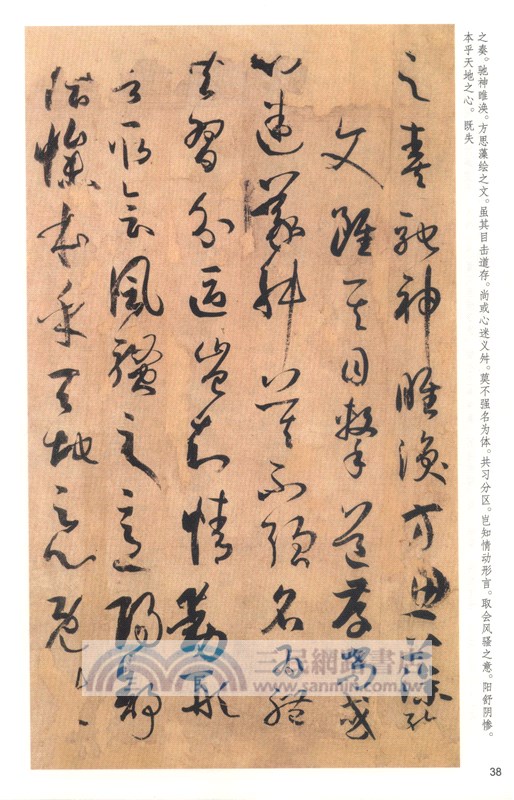 之奏。驰神睢涣。方思藻绘之文。虽其目击道存。尚或心迷义舛。莫不强名为体。共习分区。岂知情动形言。取会风骚之意。阳舒阴惨。
本乎天地之心。既失
之奏馳神睢渙方思藻繪之
文雖其目擊道存尚或
心迷義舛莫不強名為體
共習分區豈知情動形
言取會風騷之意陽舒
陰慘本乎天地之心既失
三民網路書店
www.sanmin.com.tw
38